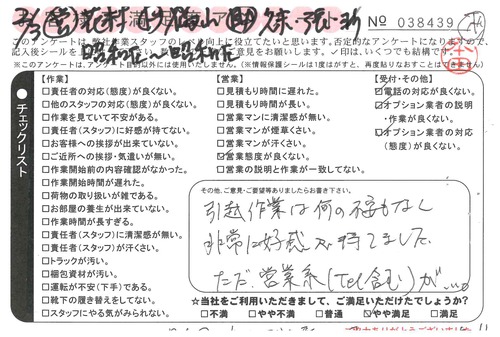 No 038439
このアンケートは弊社作業スタッフのレベル向上に役立てたいと思います。否定的なアンケートになりますので、
記入後シールを
ご意見をお願いします。✓印は、いくつでも結構です。
※このアンケートは、アンケート目的以外には使用いたしません。(※情報保護シールは1度はがすと、再度貼りなおすことはできません)
チェックリスト
【作業】
□責任者の対応(態度)が良くない。
□他のスタッフの対応(態度)が良くない。
□作業を見ていて不安がある。
□責任者(スタッフ)に好感が持てない。
□お客様への挨拶が出来ていない。
□ご近所への挨拶・気遣いが無い。
□作業開始前の内容確認がなかった。
□作業開始時間が遅れた。
□荷物の取り扱いが雑である。
□お部屋の養生が出来ていない。
□作業時間が長すぎる。
□責任者(スタッフ)に清潔感が無い。
□責任者(スタッフ)が汗くさい。
□トラックが汚い。
□梱包資材が汚い。
□運転が不安(下手)である。
□靴下の履き替えをしてない。
□スタッフにやる気がみられない。
【営業】
□見積もり時間に遅れた。
□見積もり時間が長い。
□営業マンに清潔感が無い。
□営業マンが煙草くさい。
□営業マンが汗くさい。
☑営業態度が良くない。
□営業の説明と作業が一致してない。
【受付・その他】
☑電話の対応が良くない。
☑オプション業者の説明
・作業が良くない。
☑オプション業者の対応
(態度)が良くない。
その他、ご意見・ご要望等ありましたらお書き下さい。
引越作業は何の不安もなく
非常に好感が持てました。
ただ、営業系(Tel含む)が…。
☆当社をご利用いただきまして、ご満足いただけたでしょうか?
□不満 □やや不満 □普通 ☑やや満足 □満足
ありがとうございました